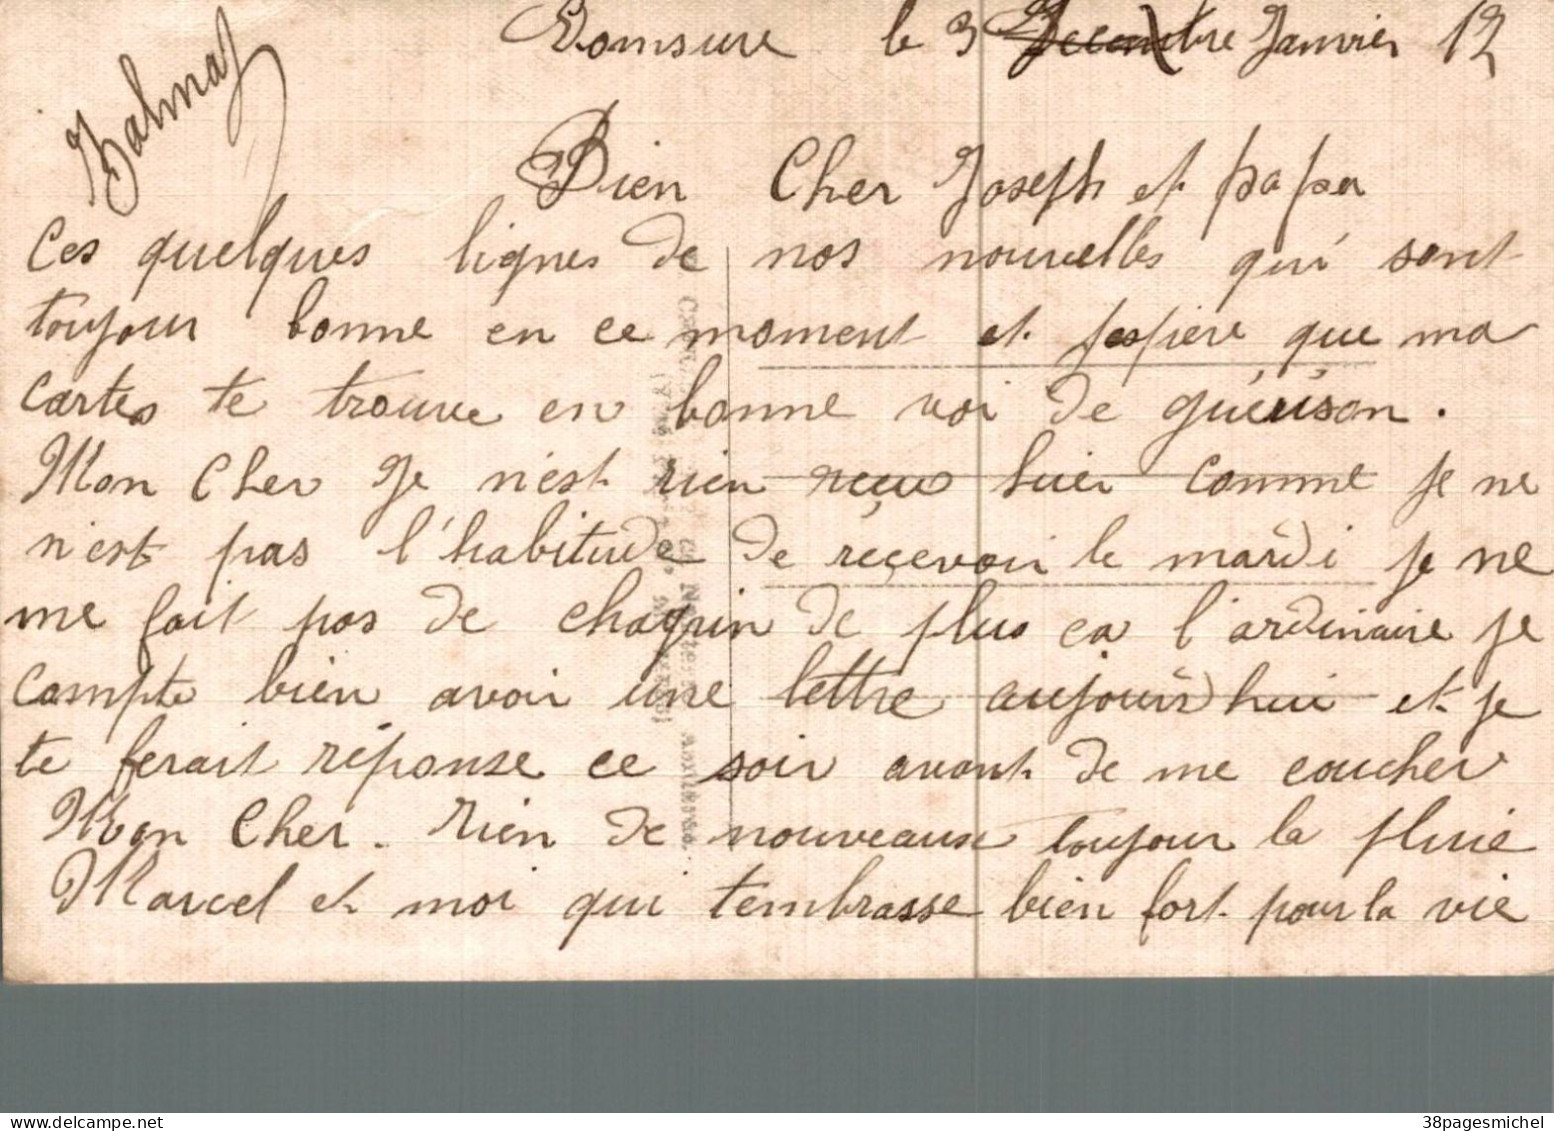 le 3 Decembre Janvier 12
Balmas
Bien Cher Joseph et papa
Ces quelques lignes de nos nouvelles qui sont
toujour bonne en ce moment et jespiere que ma
cartes te trouve en bonne voi de guérison.
Mon Cher Je n'est rien reçu hier comme je ne
n'est pas l'habitude de reçevoir le mardi je ne
me fait pas de chagrin de plus ca l'ardinaire je
compte bien avoir une lettre aujourd hui et je
te ferait réponse ce soir avant de me coucher
Mon Cher. rien de nouveaux toujour la pluie
Marcel et moi qui tembrasse bien fort pour la vie
38pagesmichel